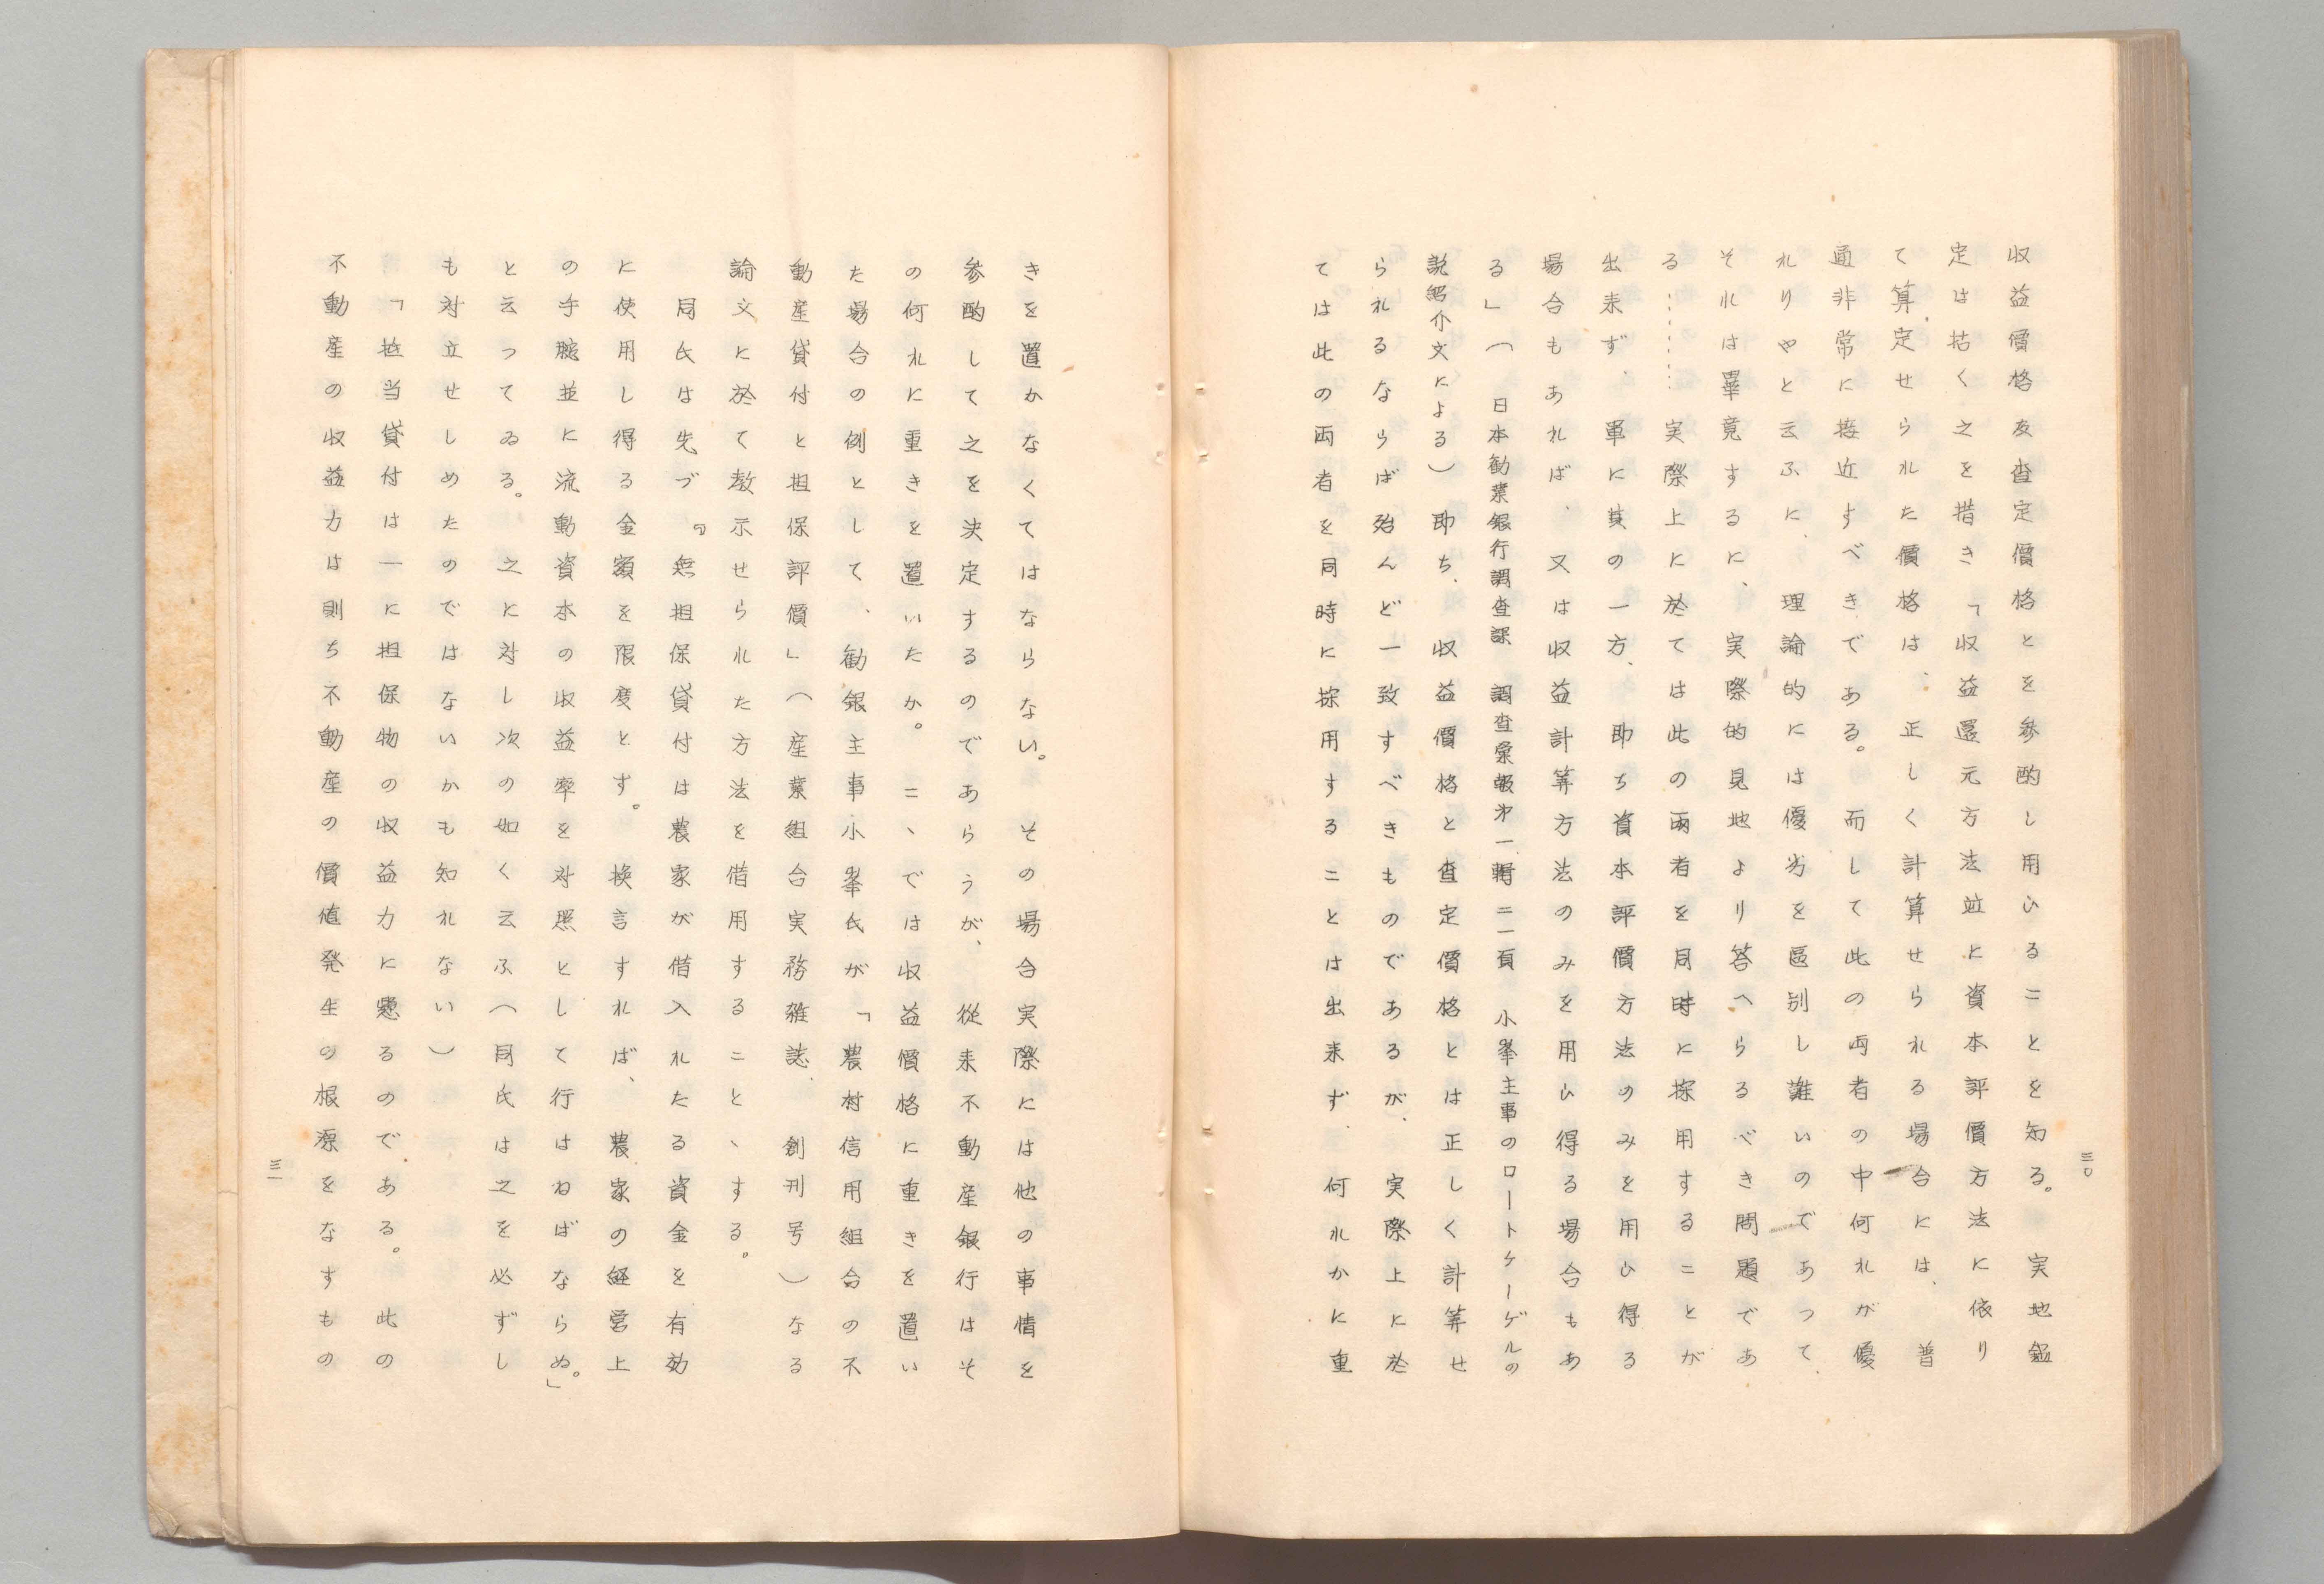 三〇
収益價格及査定價格とを参酌し用ひることを知る。実地鑑
定は措く之を措き「収益還元方法並に資本評價方法に依り
て算定せられた價格は、正しく計算せられる場合には、普
通非常に接近すべきである。而して此の両者の中何れが優
れりやと云ふに、理論的には優劣を區別し難いのであつて、
それは畢竟するに、実際的見地より答へらるべき問題であ
る……実際上に於ては此の両者を同時に採用することが
出来ず、單に其の一方、即ち資本評價方法のみを用ひ得る
場合もあれば、又は収益計算方法のみを用ひ得る場合もあ
る」（日本勧業銀行調査課 調査彙報第一輯二一頁 小峯主事のロートケーゲルの
説紹介文による）即ち、収益價格と査定價格とは正しく計算せ
られるならば殆んど一致すべきものであるが、実際上に於
ては此の両者を同時に採用することは出来ず、何れかに重
きを置かなくてはならない。その場合実際には他の事情を
参酌して之を決定するのであらうが、從来不動産銀行はそ
の何れに重きを置いたか。こゝでは収益價格に重きを置い
た場合の例として、勧銀主事小峯氏が「農村信用組合の不
動産貸付と担保評價」（産業組合実務雑誌、創刊号）なる
論文に於て教示せられた方法を借用することゝする。
同氏は先づ『無担保貸付は農家が借入れたる資金を有効
に使用し得る金額を限度とす。換言すれば、農家の経営上
の手腕並に流動資本の収益率を対照として行はねばならぬ。」
と云つてゐる。之に対し次の如く云ふ（同氏は之を必ずし
も対立せしめたのではないかも知れない）
「抵当貸付は一に担保物の収益力に懸るのである。此の
不動産の収益力は則ち不動産の價値発生の根源をなすもの
三一